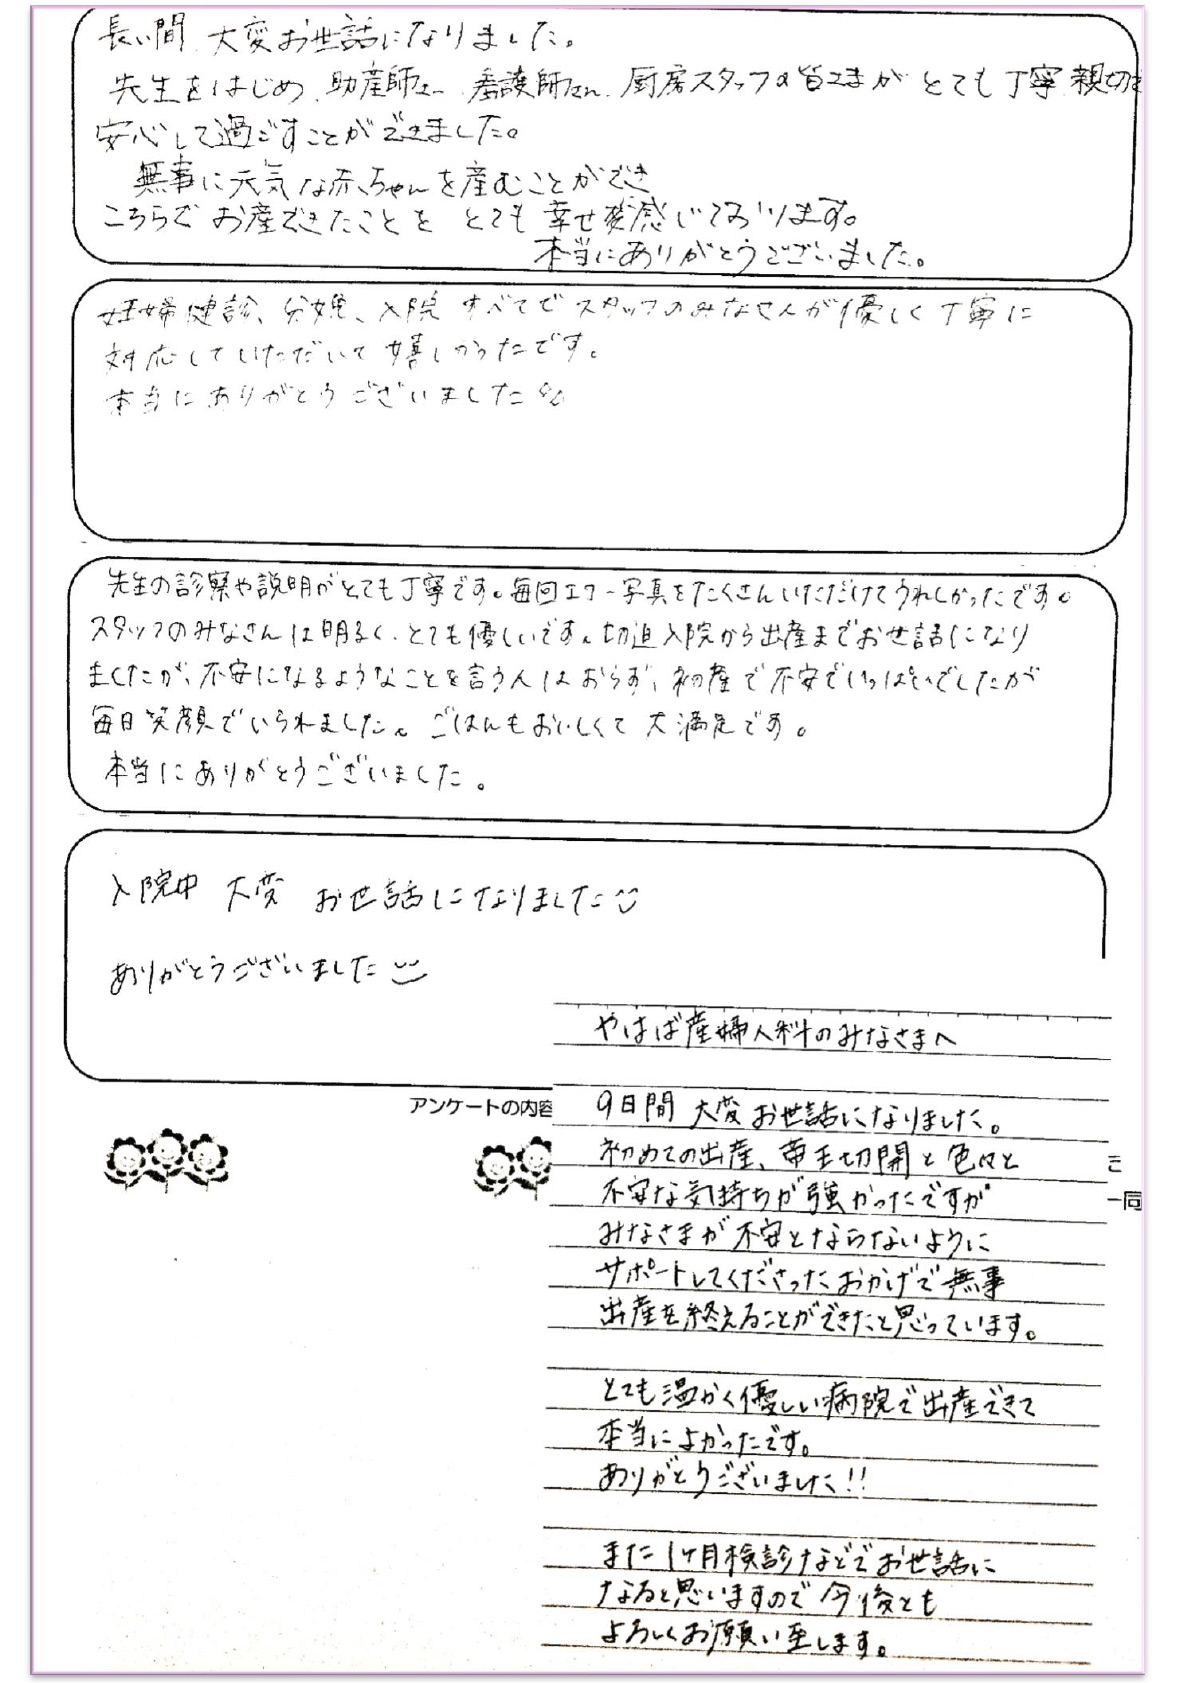 長い間 大変お世話になりました。
先生をはじめ、助産師さん、看護師さん、厨房スタッフの皆さまが とても丁寧 親切で
安心して過ごすことができました。
無事に元気な赤ちゃんを産むことができ
こちらで お産できたことを とても 幸せに感じております。
本当にありがとうございました。
妊婦健診、分娩、入院 すべてで スタッフのみなせんが優しく丁寧に
対応していただいて嬉しかったです。
本当にありがとうございました
先生の診察や説明がとても丁寧です。毎回エコー写真をたくさんいただけてうれしかったです。
スタッフのみなさんは明るく、とても優しいです。切迫入院から出産までお世話になり
ましたが、不安になるようなことを言う人はおらず、初産で不安でいっぱいでしたが
毎日笑顔でいられました。ごはんもおいしくて大満足です。
本当にありがとうございました。
入院中 大変 お世話になりました
ありがとうございました
アンケートの内容
やはば産婦人科のみなさまへ
9日間 大変お世話になりました。
初めての出産、帝王切開と色々と
不安な気持ちが強かったですが
みなさまが不安とならないように
サポートしてくださったおかげで無事
出産を終えることができたと思っています。
とても温かく優しい病院で出産できて
本当によかったです。
ありがとうございました!!
また1ヶ月検診などでお世話に
なると思いますので今後とも
よろしくお願い致します。
一同